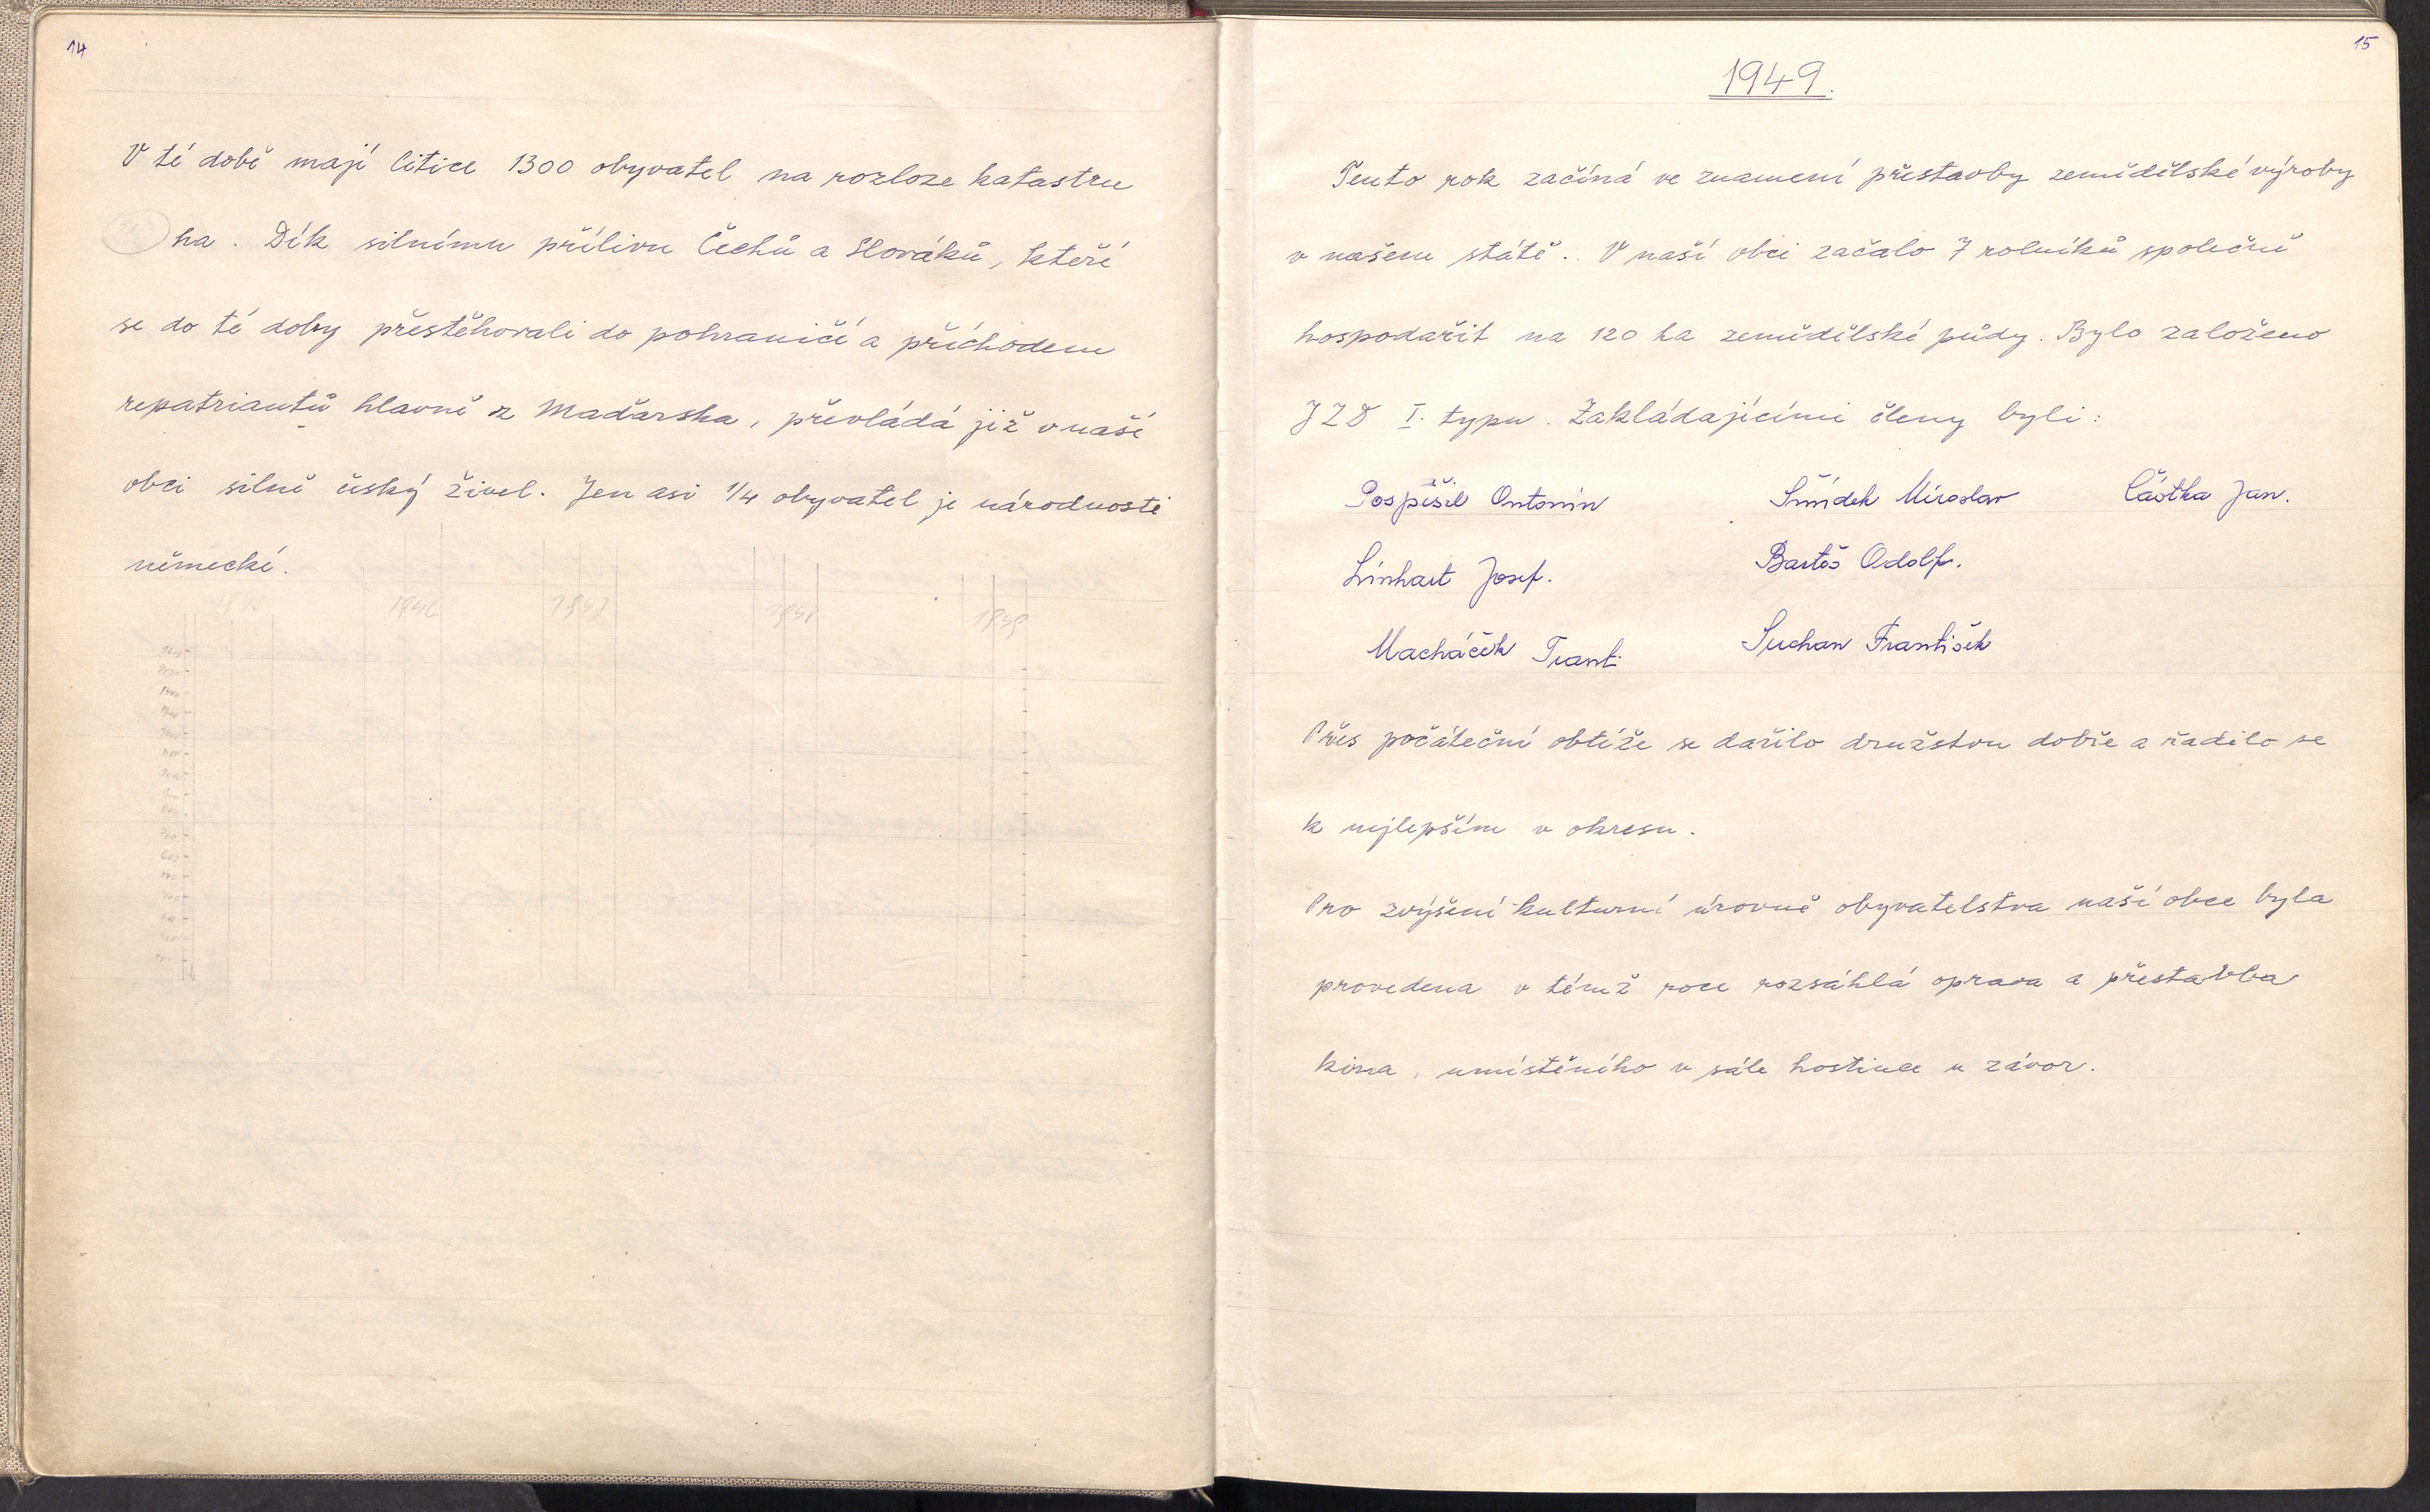 14
V té době mají Litice 1300 obyvatel na rozloze katastru
ha. Dík silnému přílivu Čechů a Slováků, kteří
se do té doby přestěhovali do pohraničí a příchodem
repatriantů hlavně z Maďarska, převládá již v naší
obci silně český živel. Jen asi 1/4 obyvatel je národnosti
německé.
1946 1947 1948 1949
15
1949.
Tento rok začíná ve znamení přestavby zemědělské výroby
v našem státě. V naší obci začalo 7 rolníků společně
hospodařit na 120 ha zemědělské půdy. Bylo založeno
JZD I. typu. Zakládajícími členy byli:
Pospíšil Antonín Šmídek Miroslav Částka Jan.
Linhart Josef. Bartoš Adolf.
Macháček Frant. Suchan František
Přes počáteční obtíže se dařilo družstvu dobře a řadilo se
k nejlepším v okresu.
Pro zvýšení kulturní úrovně obyvatelstva naší obce byla
provedena v témž roce rozsáhlá oprava a přestavba
kina, umístěného v sále hostince u závor.